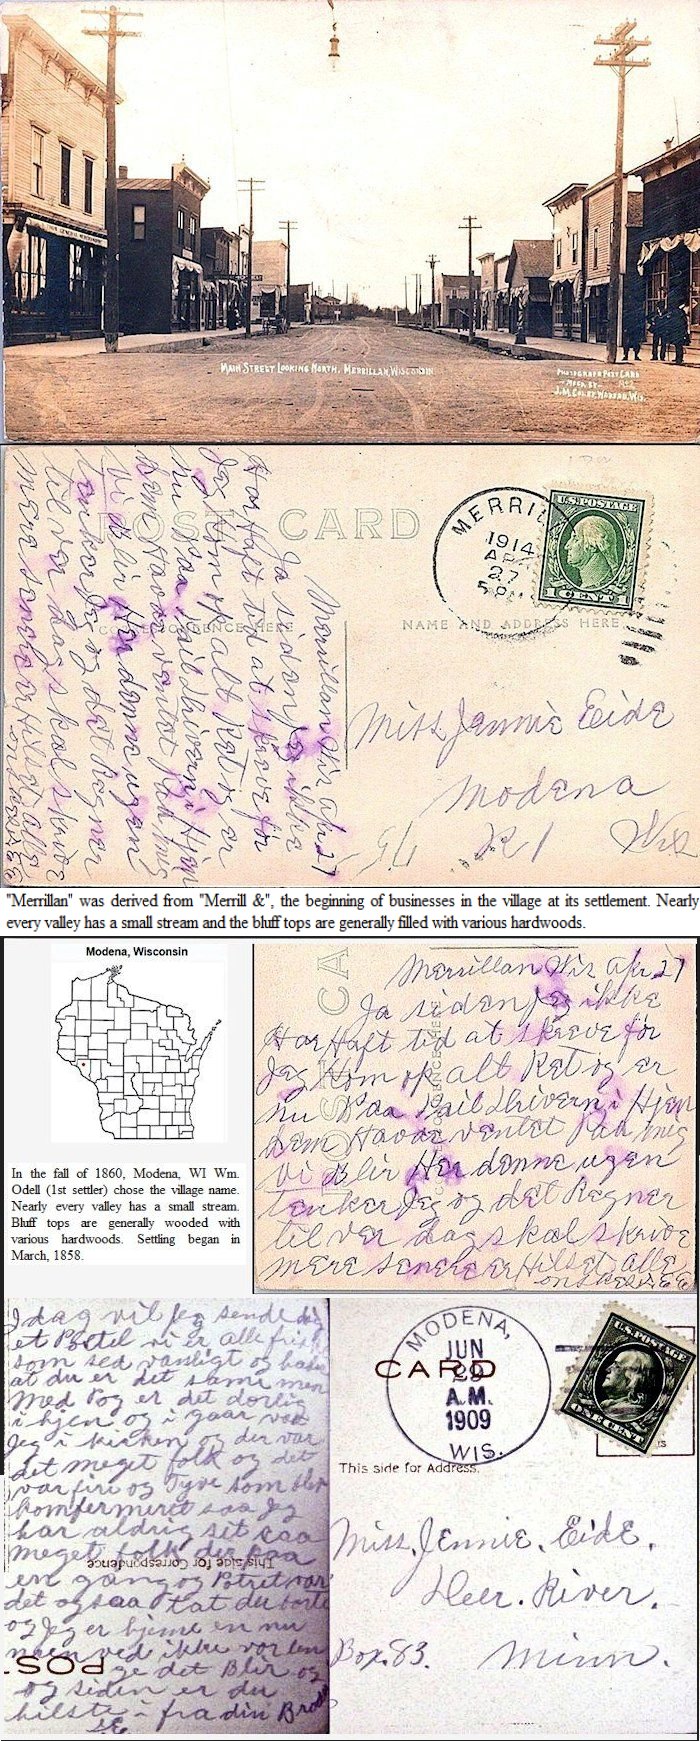 MAIN STREET LOOKING NORTH, MERRILLAN, WISCONSIN
PHOTOGRAPH POST CARD
MFGD. BY
J.M. COLBY, WAUSAU, WIS.
POST CARD
CORRESPONDENCE HERE
NAME AND ADDRESS HERE
MERRIL
1914
27
U.S. POSTAGE
1 CENT 1
Merrillan Wis Apr 27
Ja siden Jeg ikke
Har Haft tid at skreve før
Jeg Kom op alt Ret og er
nu Paa
Hjem Haavde ventet Paa mig
vi Blir Her denne ugen
tenker Jeg og det Regner
til ver dag skal skrive
mere senere er Hilset alle
Miss Jennie Eide
Modena
R 1 Wis
"Merrillan" was derived from "Merrill &", the beginning of businesses in the village at its settlement. Nearly
every valley has a small stream and the bluff tops are generally filled with various hardwoods.
Modena, Wisconsin
In the fall of 1860, Modena, WI Wm.
Odell (1st settler) chose the village name.
Nearly every valley has a small stream.
Bluff tops are generally wooded with
various hardwoods. Settling began in
March, 1858.
Merrillan Wis Apr 27
Ja siden Jeg ikke
Har Haft tid at skreve før
Jeg Kom op alt Ret og er
nu Paa
Hjem Haavde ventet Paa mig
vi Blir Her denne ugen
tenker Jeg og det Regner
til ver dag skal skrive
mere senere er Hilset alle
I dag vil Jeg sende dig
et Postel vi er alle frisk
som sed vanligt og
at du er det samme men
med Pog er det dorlig
i hjen og i gaar var
Jeg i kirken og der var
det meget folk og det
var firi og Tyve som blev
komfermeret saa Jeg
har aldrig set saa
meget folk der paa
en gang og Potret var
det ogsaa tat du borte
og Jeg er hjeme en nu
men ved ikke vor len
ge det Blir og
og siden er du
hilst fra din
This side for Correspondence
POS
MODENA,
JUN
29
A.M.
1909
WIS.
CARD
U.S. POSTAGE
ONE CENT
This side for Address.
Miss. Jennie. Eide.
Deer. River.
Box. 83. Minn.